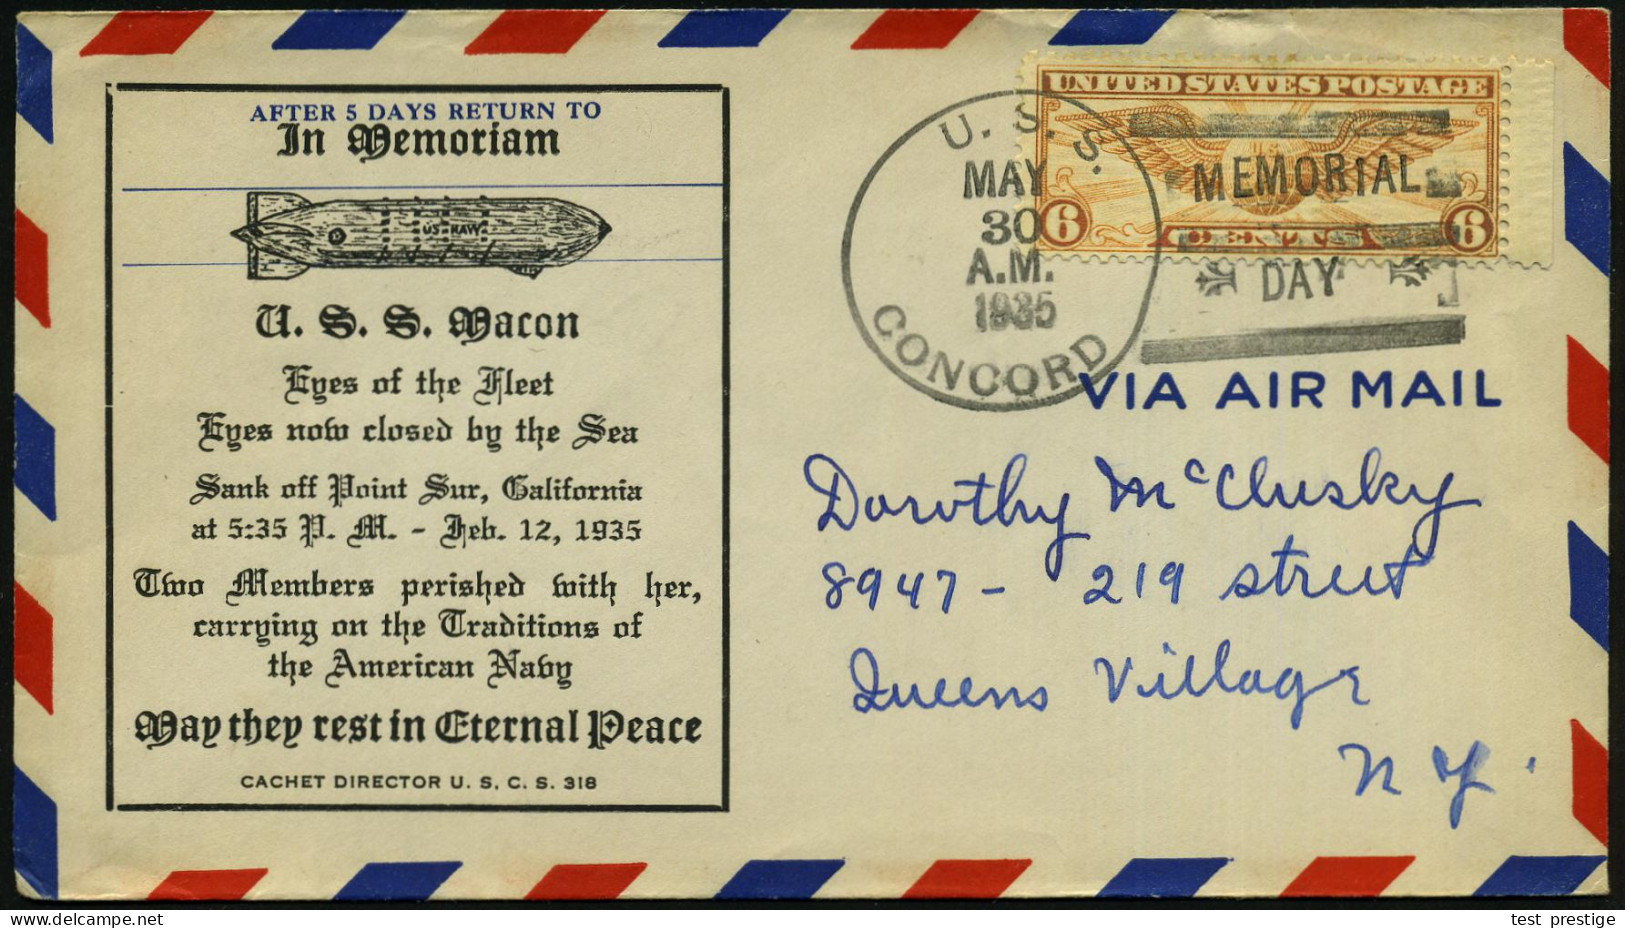 AFTER 5 DAYS RETURN TO
In Memoriam
US NAVY
U. S. S. Macon
Eyes of the Fleet
Eyes now closed by the Sea
Sank off Point Sur, California
at 5:35 P. M. - Feb. 12, 1935
Two Members perished with her,
carrying on the Traditions of
the American Navy
May they rest in Eternal Peace
CACHET DIRECTOR U. S. C. S. 318
U. S. S.
MAY
30
A.M.
1935
CONCORD
UNITED STATES POSTAGE
MEMORIAL
6 CENTS 6
DAY
VIA AIR MAIL
Dorothy McClusky
8947 - 219 street
Queens Village
N Y.
test prestige